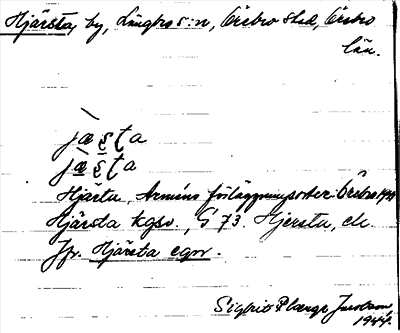 Hjärsta, by, Längbro s:n, Örebro stad, Örebro
län.
jæ̀ṣṭa
jæṣṭa
Hjärsta, Arméns förläggningsorter. Örebro 1941
Hjärsta kgsv., G 73. Hjersta, de.
Jfr. Hjärsta egnr.
Sigfrid
1944.